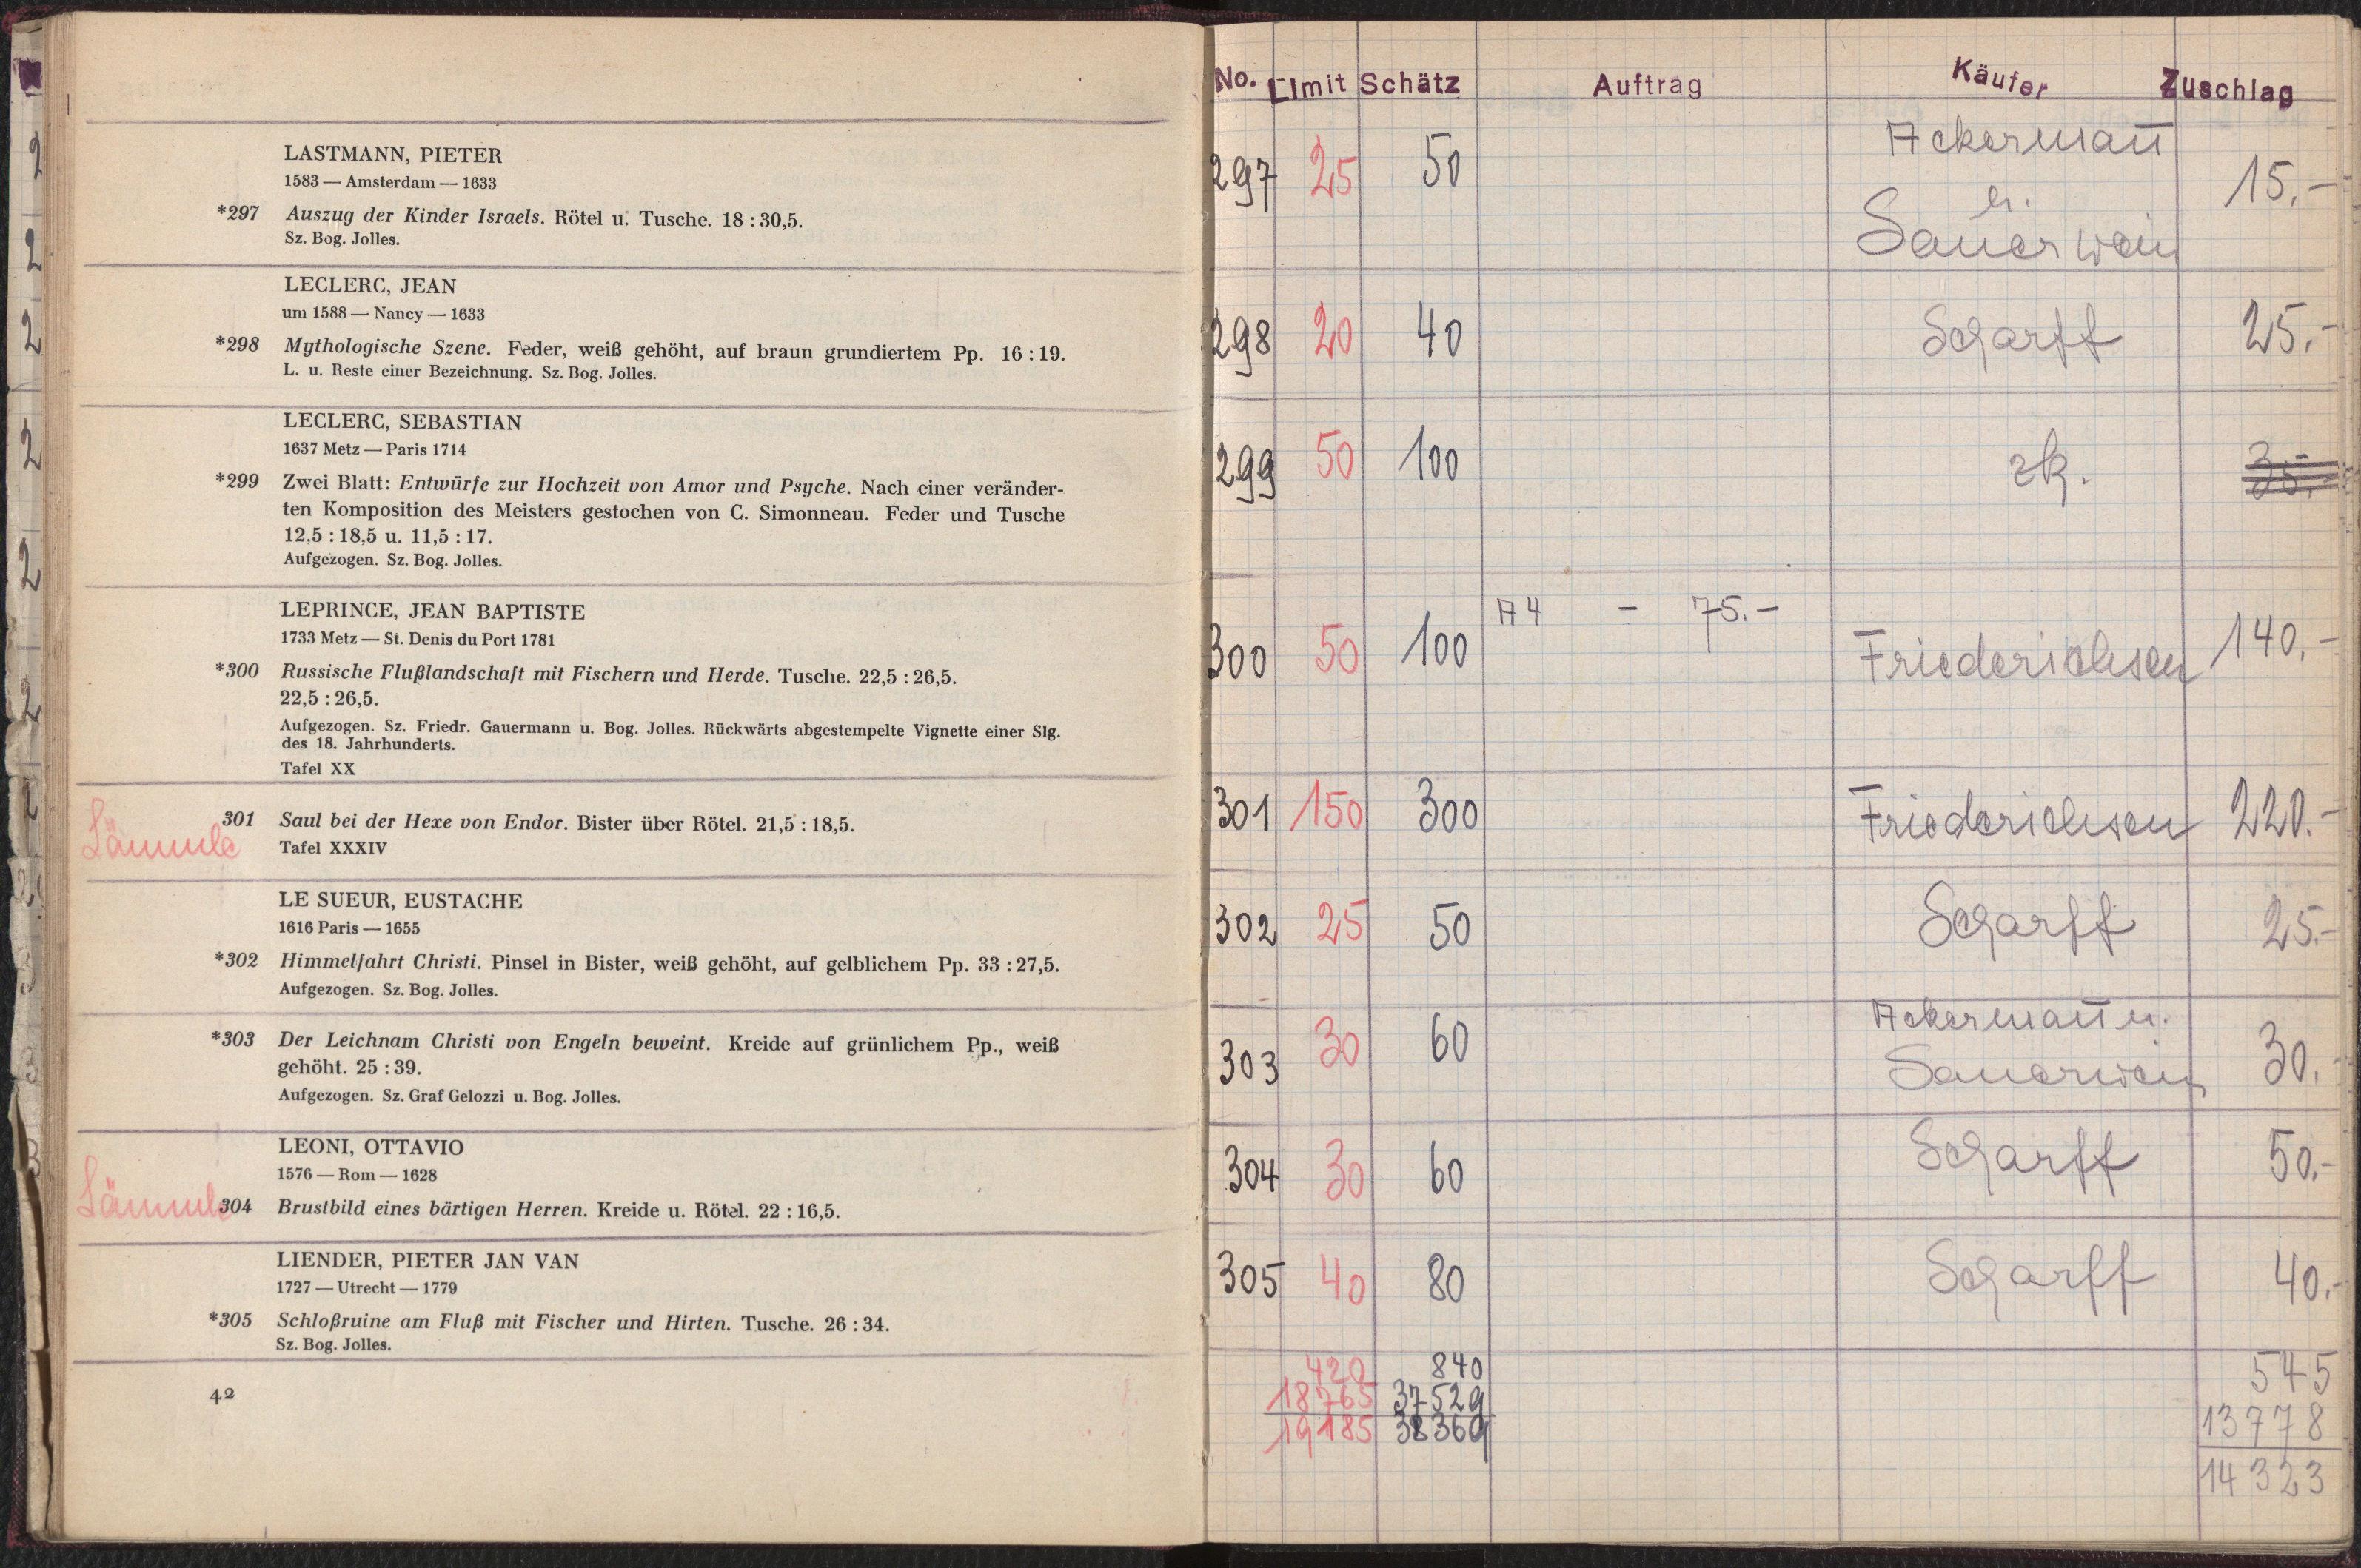 LASTMANN, PIETER
1583 — Amsterdam — 1633
*297 Auszug der Kinder Israels. Rötel u. Tusche. 18 : 30,5.
Sz. Bog. Jolles.
LECLERC, JEAN
um 1588 — Nancy — 1633
*298 Mythologische Szene. Feder, weiß gehöht, auf braun grundiertem Pp. 16 : 19.
L. u. Reste einer Bezeichnung. Sz. Bog. Jolles.
LECLERC, SEBASTIAN
1637 Metz — Paris 1714
*299 Zwei Blatt: Entwürfe zur Hochzeit von Amor und Psyche. Nach einer veränder-
ten Komposition des Meisters gestochen von C. Simonneau. Feder und Tusche
12,5 : 18,5 u. 11,5 : 17.
Aufgezogen. Sz. Bog. Jolles.
LEPRINCE, JEAN BAPTISTE
1733 Metz — St. Denis du Port 1781
*300 Russische Flußlandschaft mit Fischern und Herde. Tusche. 22,5 : 26,5.
22,5 : 26,5.
Aufgezogen. Sz. Friedr. Gauermann u. Bog. Jolles. Rückwärts abgestempelte Vignette einer Slg.
des 18. Jahrhunderts.
Tafel XX
Lämmle 301 Saul bei der Hexe von Endor. Bister über Rötel. 21,5 : 18,5.
Tafel XXXIV
LE SUEUR, EUSTACHE
1616 Paris — 1655
*302 Himmelfahrt Christi. Pinsel in Bister, weiß gehöht, auf gelblichem Pp. 33 : 27,5.
Aufgezogen. Sz. Bog. Jolles.
*303 Der Leichnam Christi von Engeln beweint. Kreide auf grünlichem Pp., weiß
gehöht. 25 : 39.
Aufgezogen. Sz. Graf Gelozzi u. Bog. Jolles.
LEONI, OTTAVIO
1576 — Rom — 1628
Lämmle 304 Brustbild eines bärtigen Herren. Kreide u. Rötel. 22 : 16,5.
LIENDER, PIETER JAN VAN
1727 — Utrecht — 1779
*305 Schloßruine am Fluß mit Fischer und Hirten. Tusche. 26 : 34.
Sz. Bog. Jolles.
42
No. Limit Schätz Auftrag Käufer Zuschlag
297 25 50 Ackermañ
u.
Sauerwein 15.-
298 20 40 Scharff 25.-
299 50 100 zk. 35.-
300 50 100 A4 - 75.- Friederichsen 140.-
301 150 300 Friederichsen 220.-
302 25 50 Scharff 25.-
303 30 60 Ackermañ u.
Sauerwein 30.-
304 30 60 Scharff 50.-
305 40 80 Scharff 40.-
420 840 545
18765 37529 13778
19185 38369 14323